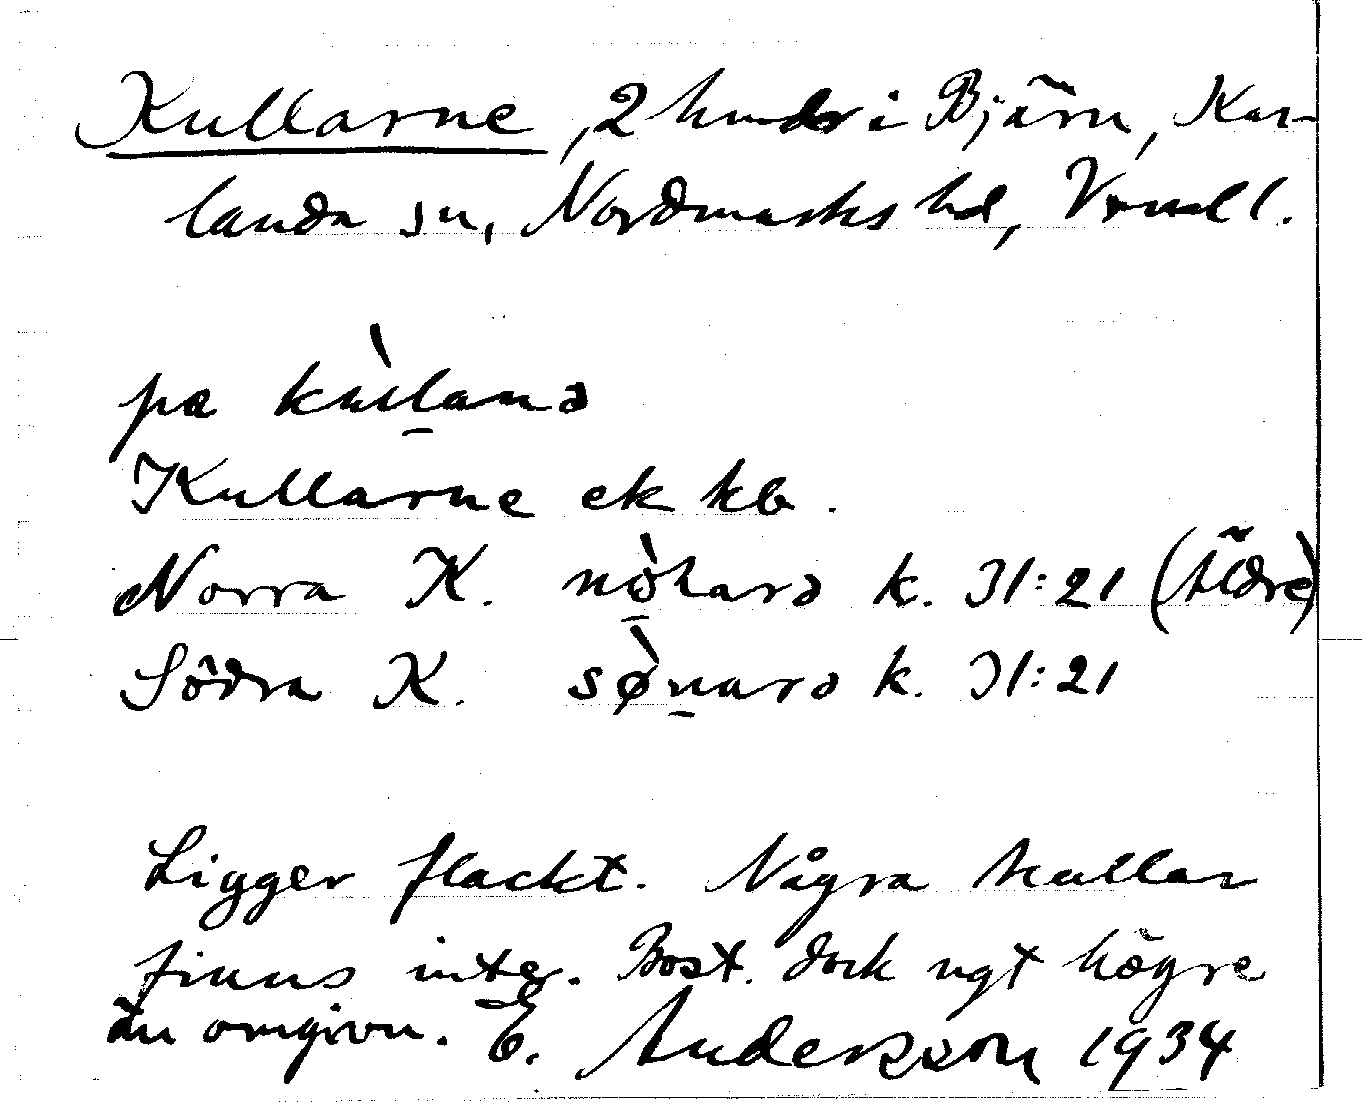 Kullarne, 2 hmdr i Bjärn, Kar-
landa sn, Nordmarks hd, Vrmll.
pa kùl̠anə
Kullarne ek kb.
Norra K. nò̠rarə k. Jl:21 (äldre)
Södra K. sø̀n̠arə k. Jl:21
Ligger flackt. Några kullar
finns inte. Bost. dock ngt högre
än omgivn. E. Andersson 1934